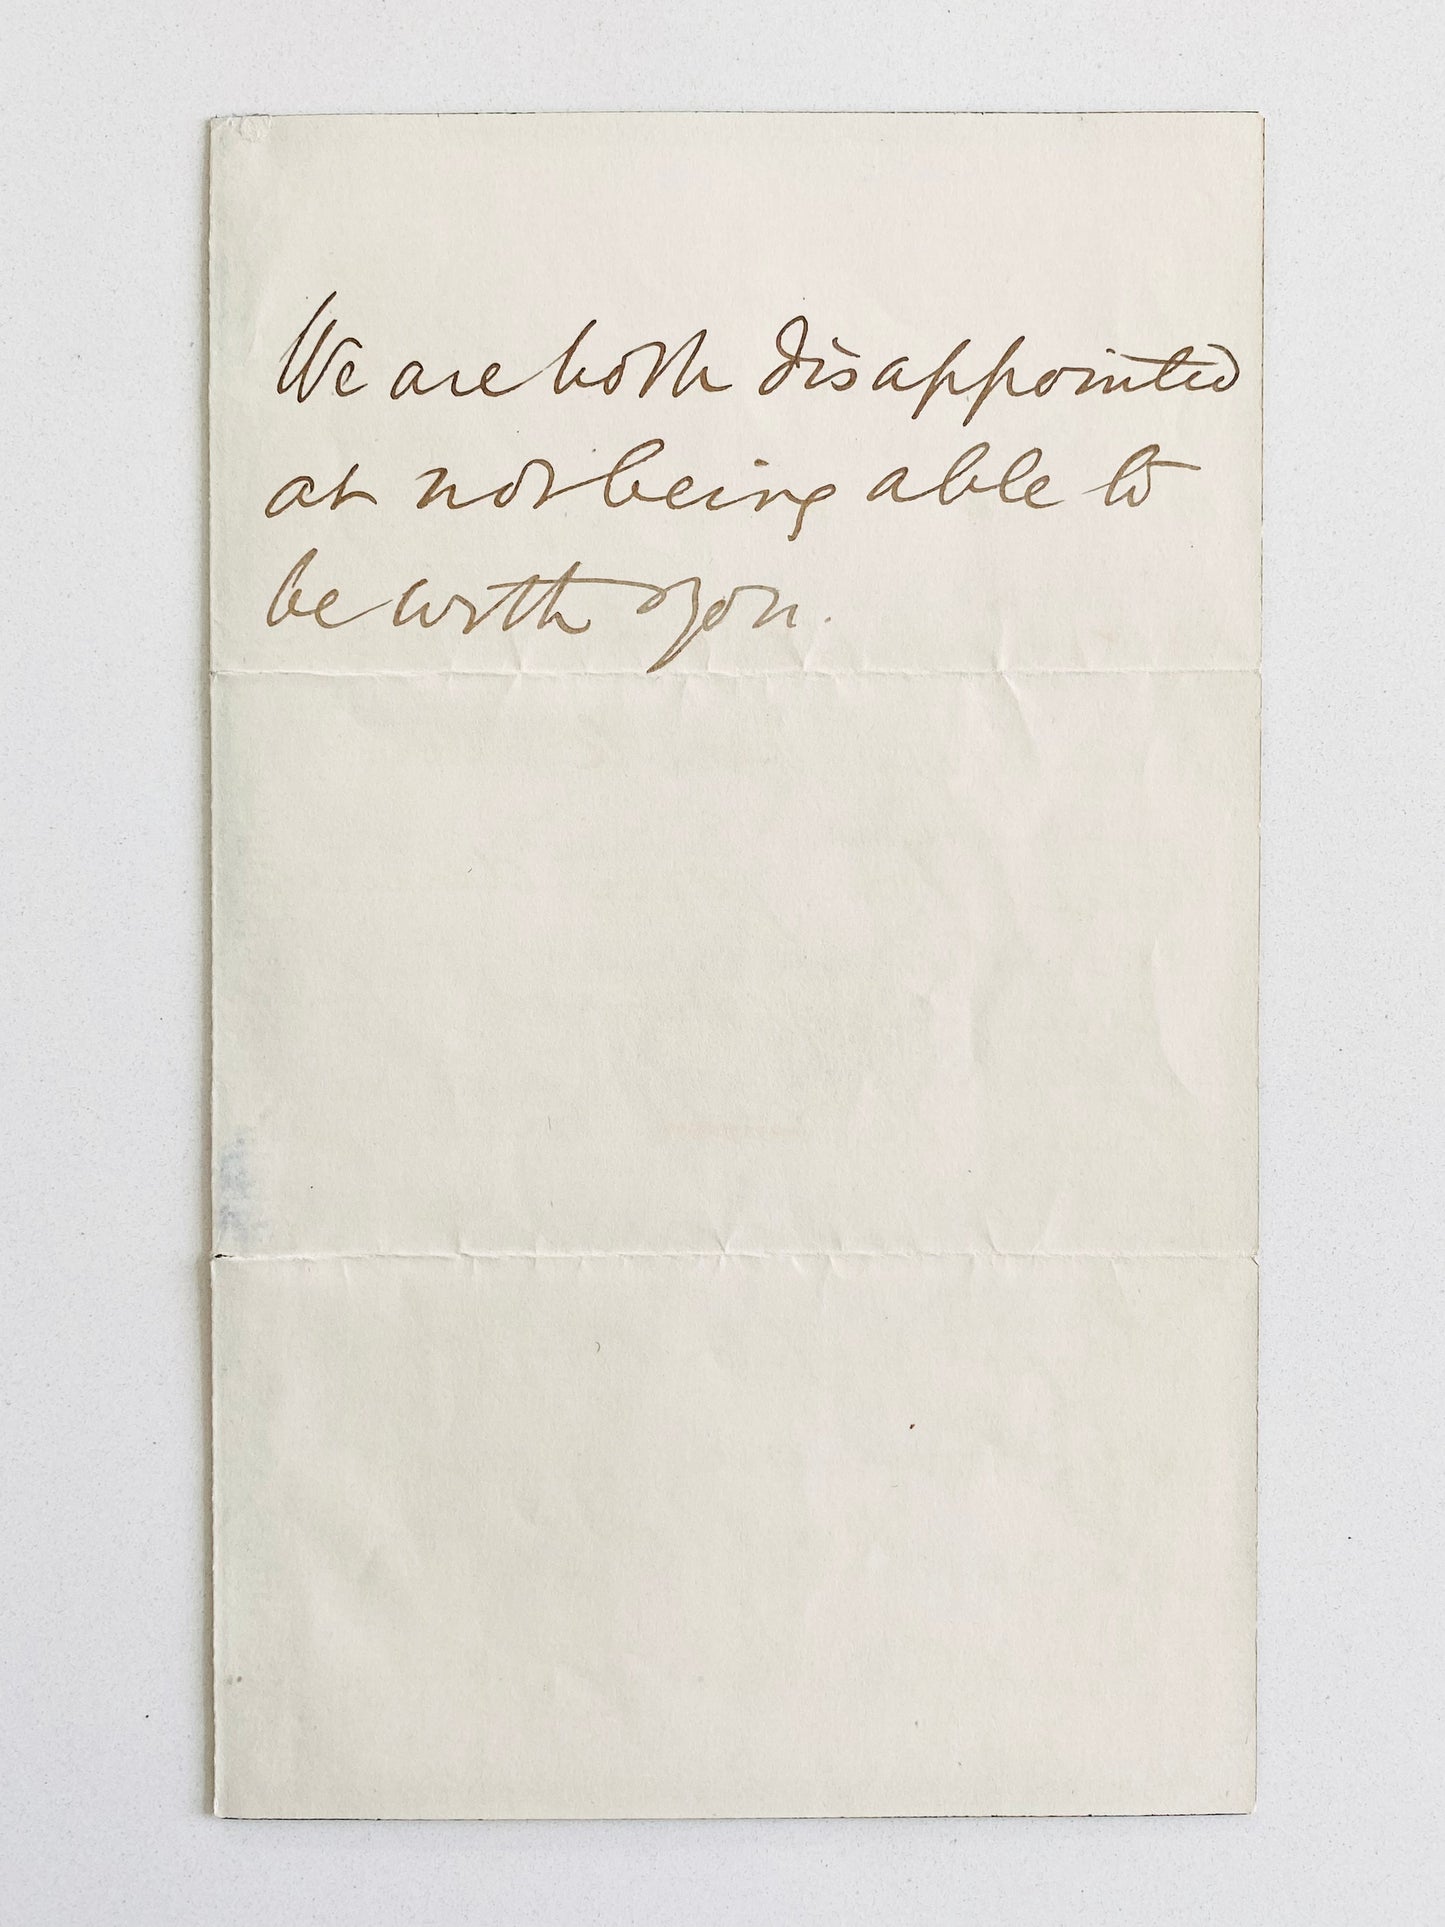 We are both disappointed
at not being able to
be with you.